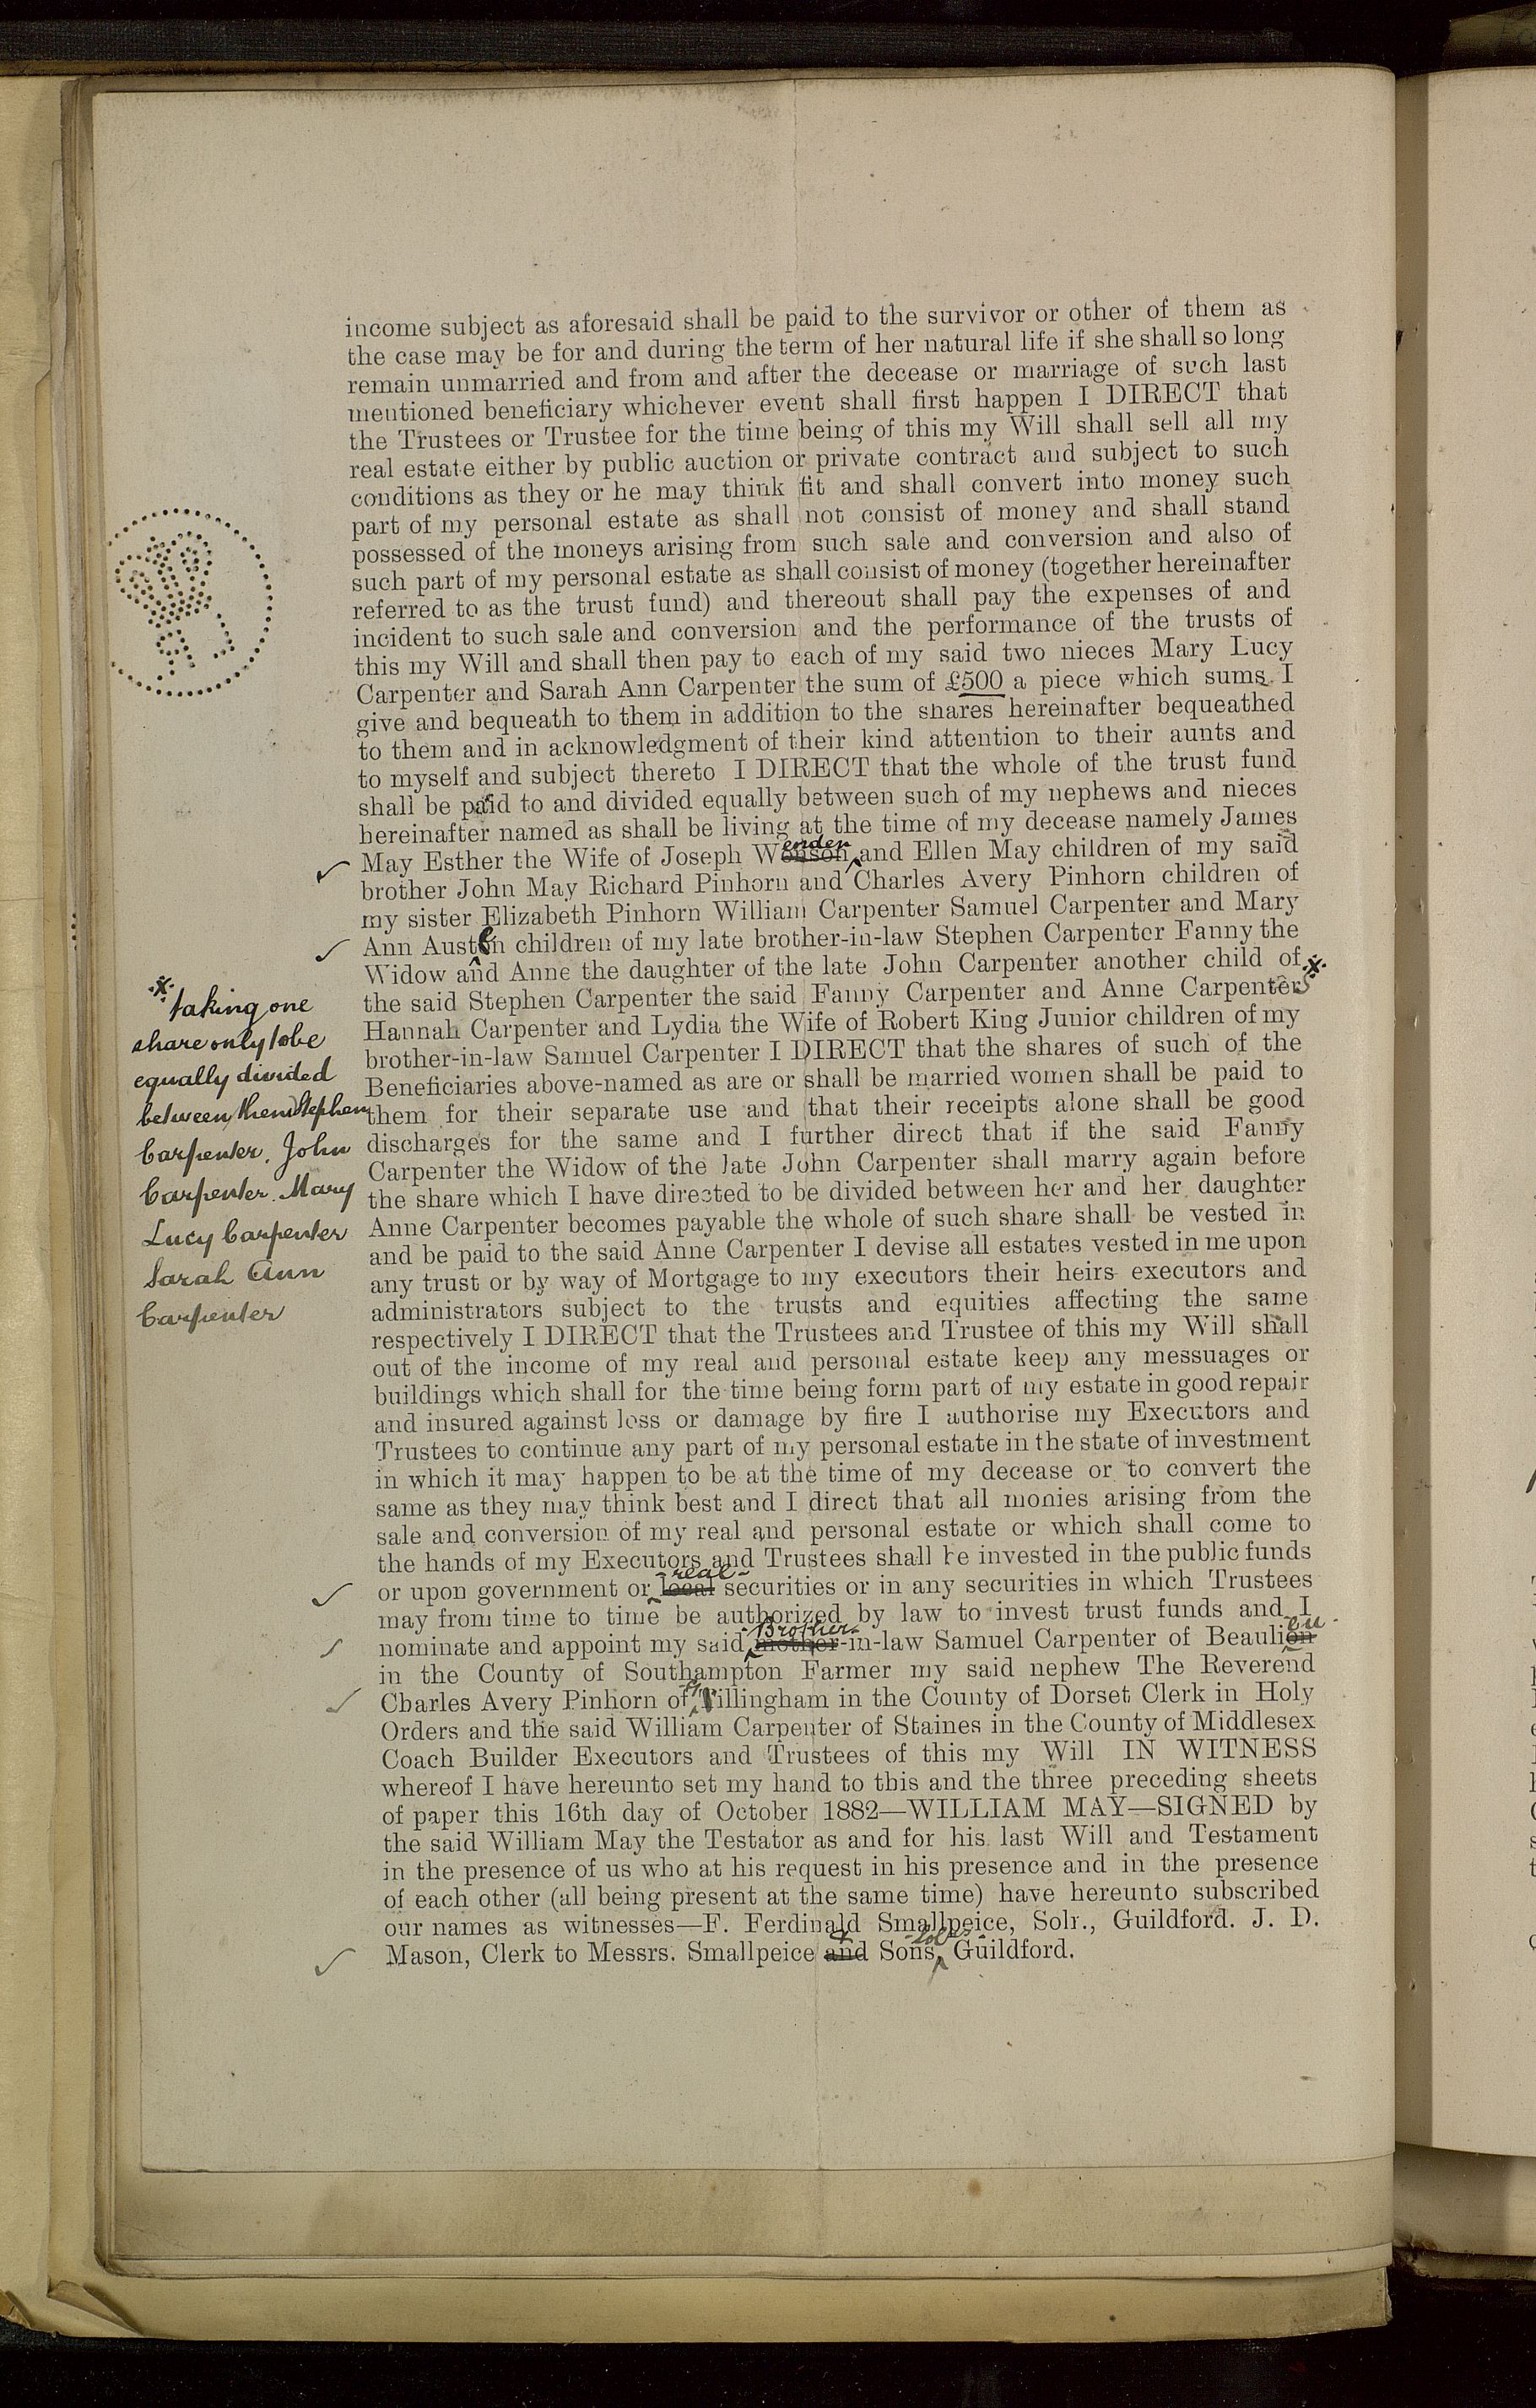 income subject as aforesaid shall be paid to the survivor or other of them as
the case may be for and during the term of her natural life if she shall so long
remain unmarried and from and after the decease or marriage of such last
mentioned beneficiary whichever event shall first happen I DIRECT that
the Trustees or Trustee for the time being of this my Will shall sell all my
real estate either by public auction or private contract and subject to such
conditions as they or he may think fit and shall convert into money such
part of my personal estate as shall not consist of money and shall stand
possessed of the moneys arising from such sale and conversion and also of
such part of my personal estate as shall consist of money (together hereinafter
referred to as the trust fund) and thereout shall pay the expenses of and
incident to such sale and conversion and the performance of the trusts of
this my Will and shall then pay to each of my said two nieces Mary Lucy
Carpenter and Sarah Ann Carpenter the sum of £500 a piece which sums I
give and bequeath to them in addition to the shares hereinafter bequeathed
to them and in acknowledgment of their kind attention to their aunts and
to myself and subject thereto I DIRECT that the whole of the trust fund
shall be paid to and divided equally between such of my nephews and nieces
hereinafter named as shall be living at the time of my decease namely James
onder
May Esther the Wife of Joseph Wonson and Ellen May children of my said
brother John May Richard Pinhorn and Charles Avery Pinhorn children of
my sister Elizabeth Pinhorn William Carpenter Samuel Carpenter and Mary
Ann Austen children of my late brother-in-law Stephen Carpenter Fanny the
Widow and Anne the daughter of the late John Carpenter another child of
the said Stephen Carpenter the said Fanny Carpenter and Anne Carpenter
Hannah Carpenter and Lydia the Wife of Robert King Junior children of my
brother-in-law Samuel Carpenter I DIRECT that the shares of such of the
Beneficiaries above-named as are or shall be married women shall be paid to
them for their separate use and that their receipts alone shall be good
discharges for the same and I further direct that if the said Fanny
Carpenter the Widow of the late John Carpenter shall marry again before
the share which I have directed to be divided between her and her daughter
Anne Carpenter becomes payable the whole of such share shall be vested in
and be paid to the said Anne Carpenter I devise all estates vested in me upon
any trust or by way of Mortgage to my executors their heirs executors and
administrators subject to the trusts and equities affecting the same
respectively I DIRECT that the Trustees and Trustee of this my Will shall
out of the income of my real and personal estate keep any messuages or
buildings which shall for the time being form part of my estate in good repair
and insured against loss or damage by fire I authorise my Executors and
Trustees to continue any part of my personal estate in the state of investment
in which it may happen to be at the time of my decease or to convert the
same as they may think best and I direct that all monies arising from the
sale and conversion of my real and personal estate or which shall come to
the hands of my Executors and Trustees shall be invested in the public funds
real
or upon government or local securities or in any securities in which Trustees
may from time to time be authorized by law to invest trust funds and I
Brother eu
nominate and appoint my said mother-in-law Samuel Carpenter of Beaulion
in the County of Southampton Farmer my said nephew The Reverend
Charles Avery Pinhorn of Gillingham in the County of Dorset Clerk in Holy
Orders and the said William Carpenter of Staines in the County of Middlesex
Coach Builder Executors and Trustees of this my Will IN WITNESS
whereof I have hereunto set my hand to this and the three preceding sheets
of paper this 16th day of October 1882—WILLIAM MAY—SIGNED by
the said William May the Testator as and for his last Will and Testament
in the presence of us who at his request in his presence and in the presence
of each other (all being present at the same time) have hereunto subscribed
our names as witnesses—F. Ferdinald Smallpeice, Solr., Guildford. J. D.
& Solrs
Mason, Clerk to Messrs. Smallpeice and Sons, Guildford.
taking one
share only to be
equally divided
between them Stephen
Carpenter. John
Carpenter. Mary
Lucy Carpenter
Sarah Ann
Carpenter